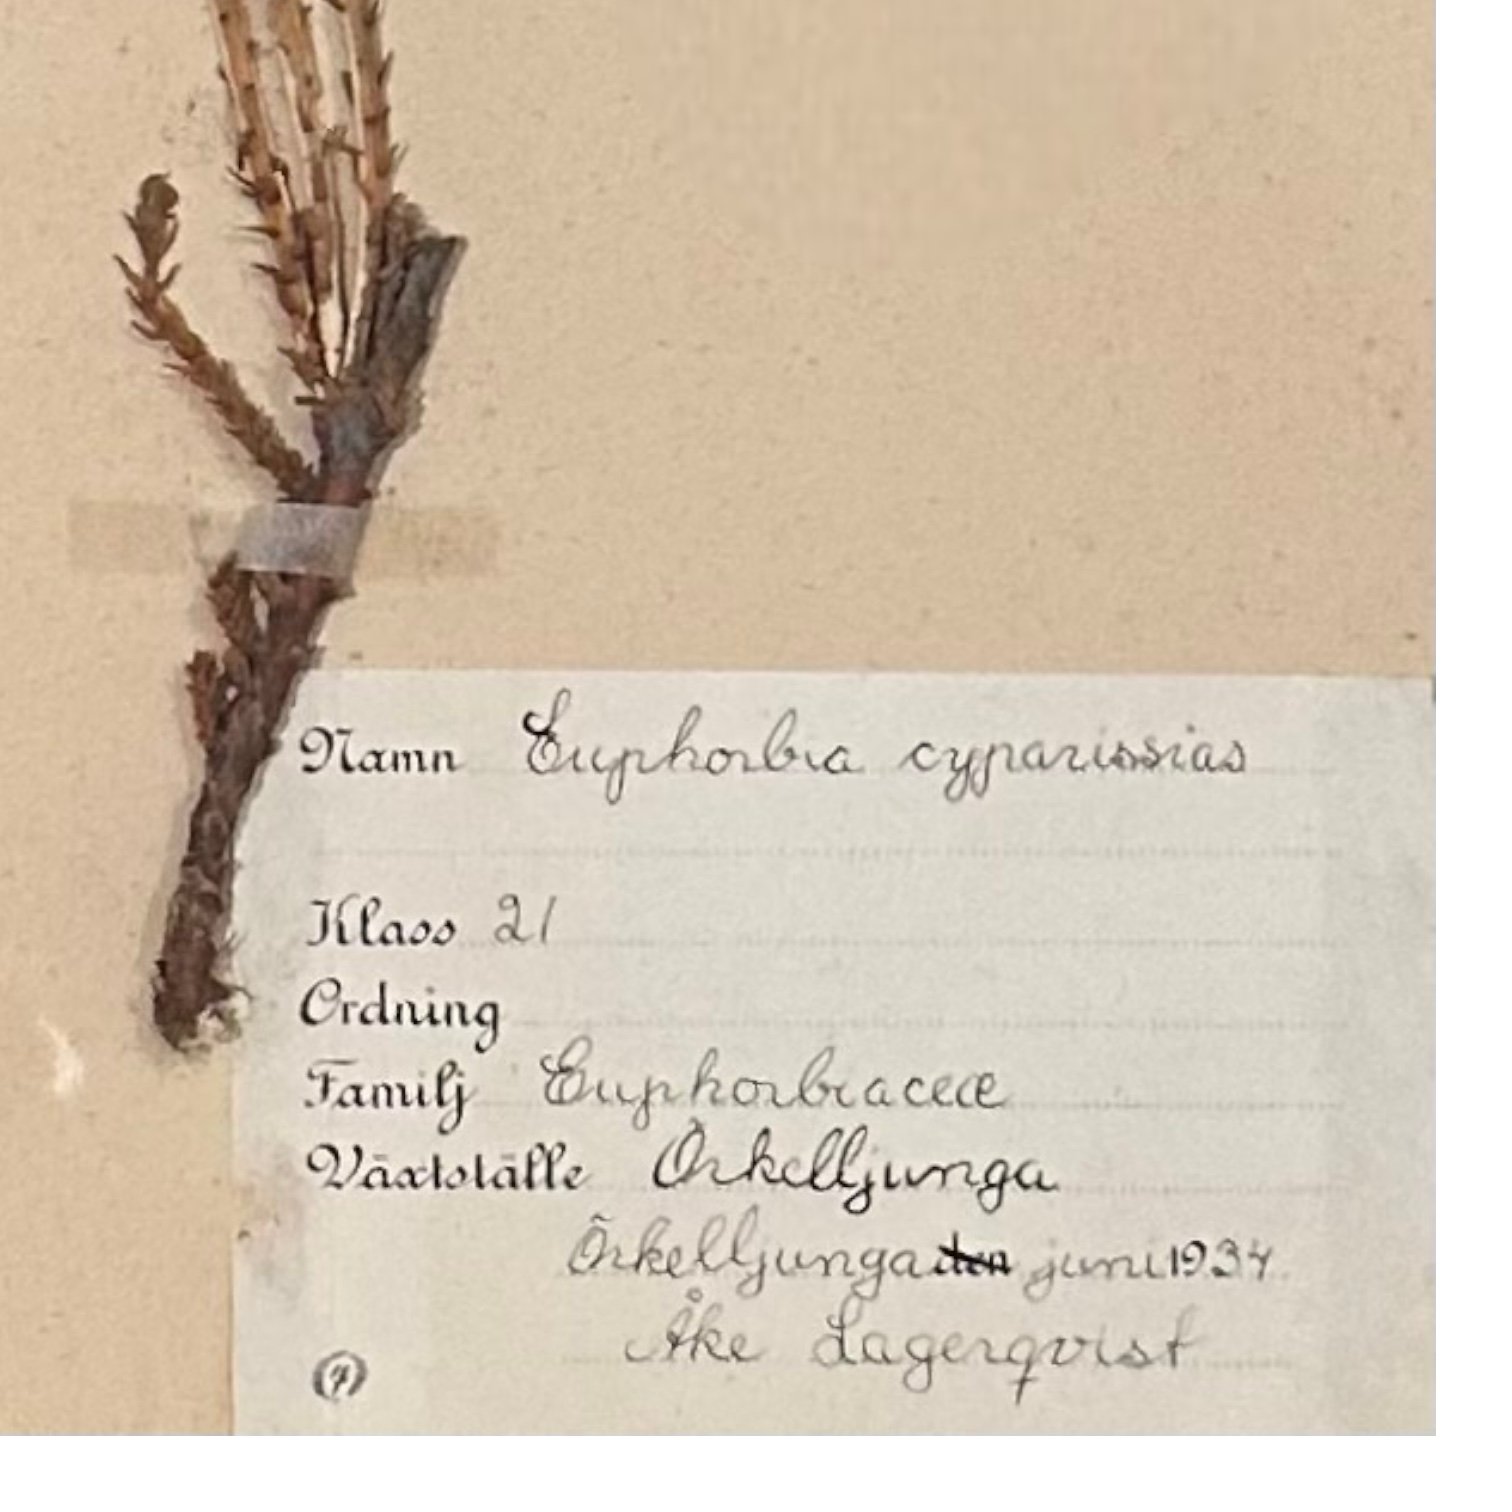 Namn Euphorbia cyparissias
Klass 21
Ordning
Familj Euphorbiaceæ
Växtställe Örkelljunga
Örkelljunga den juni 1934
Åke Lagerqvist